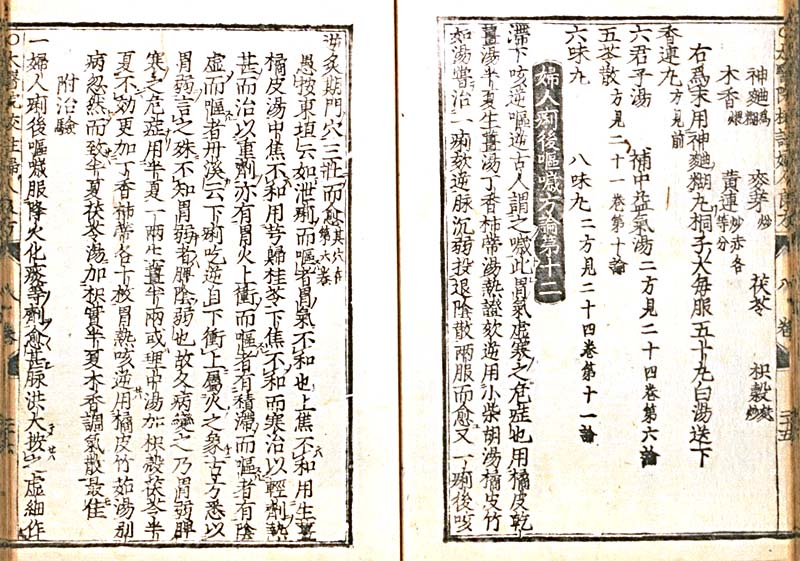 神麯為糊 麥芽炒 茯苓 枳殼麩炒
木香煨 黃連炒赤各等分
右為末用神麯糊丸桐子大每服五十丸白湯送下
香連丸方見前
六君子湯 補中益氣湯二方見二十四卷第六論
五苓散方見二十一卷第十論
六味丸 八味丸二方見二十四卷第十一論
婦人痢後嘔噦方論第十二
滯下咳逆嘔逆古人謂之噦此胃氣虛寒之危症也用橘皮乾
薑湯半夏生薑湯丁香柿蒂湯熱證欬逆用小柴胡湯橘皮竹
茹湯嘗治一痢欬逆脉沉弱投退陰散兩服而愈又一痢後咳
逆灸期門穴三壯而愈其穴在第六卷
愚按東垣云如泄痢而嘔者胃氣不和也上焦不和用生薑
橘皮湯中焦不和用芎歸桂苓下焦不和而寒治以輕劑熱
甚而治以重劑亦有胃火上衝而嘔者有積滯而嘔者有陰
虛而嘔者丹溪云下痢吃逆自下衝上屬火之象古方悉以
胃弱言之殊不知胃弱者脾陰弱也故久病變之乃胃弱脾
寒之危症用半夏一兩生薑半兩或理中湯加枳殼茯苓半
夏不効更加丁香柿蒂各十枚胃熱咳逆用橘皮竹茹湯別
病忽然而致半夏茯苓湯加枳實半夏木香調氣散最佳
附治驗
一婦人痢後嘔噦服降火化痰等劑愈甚脉洪大按之虛細作